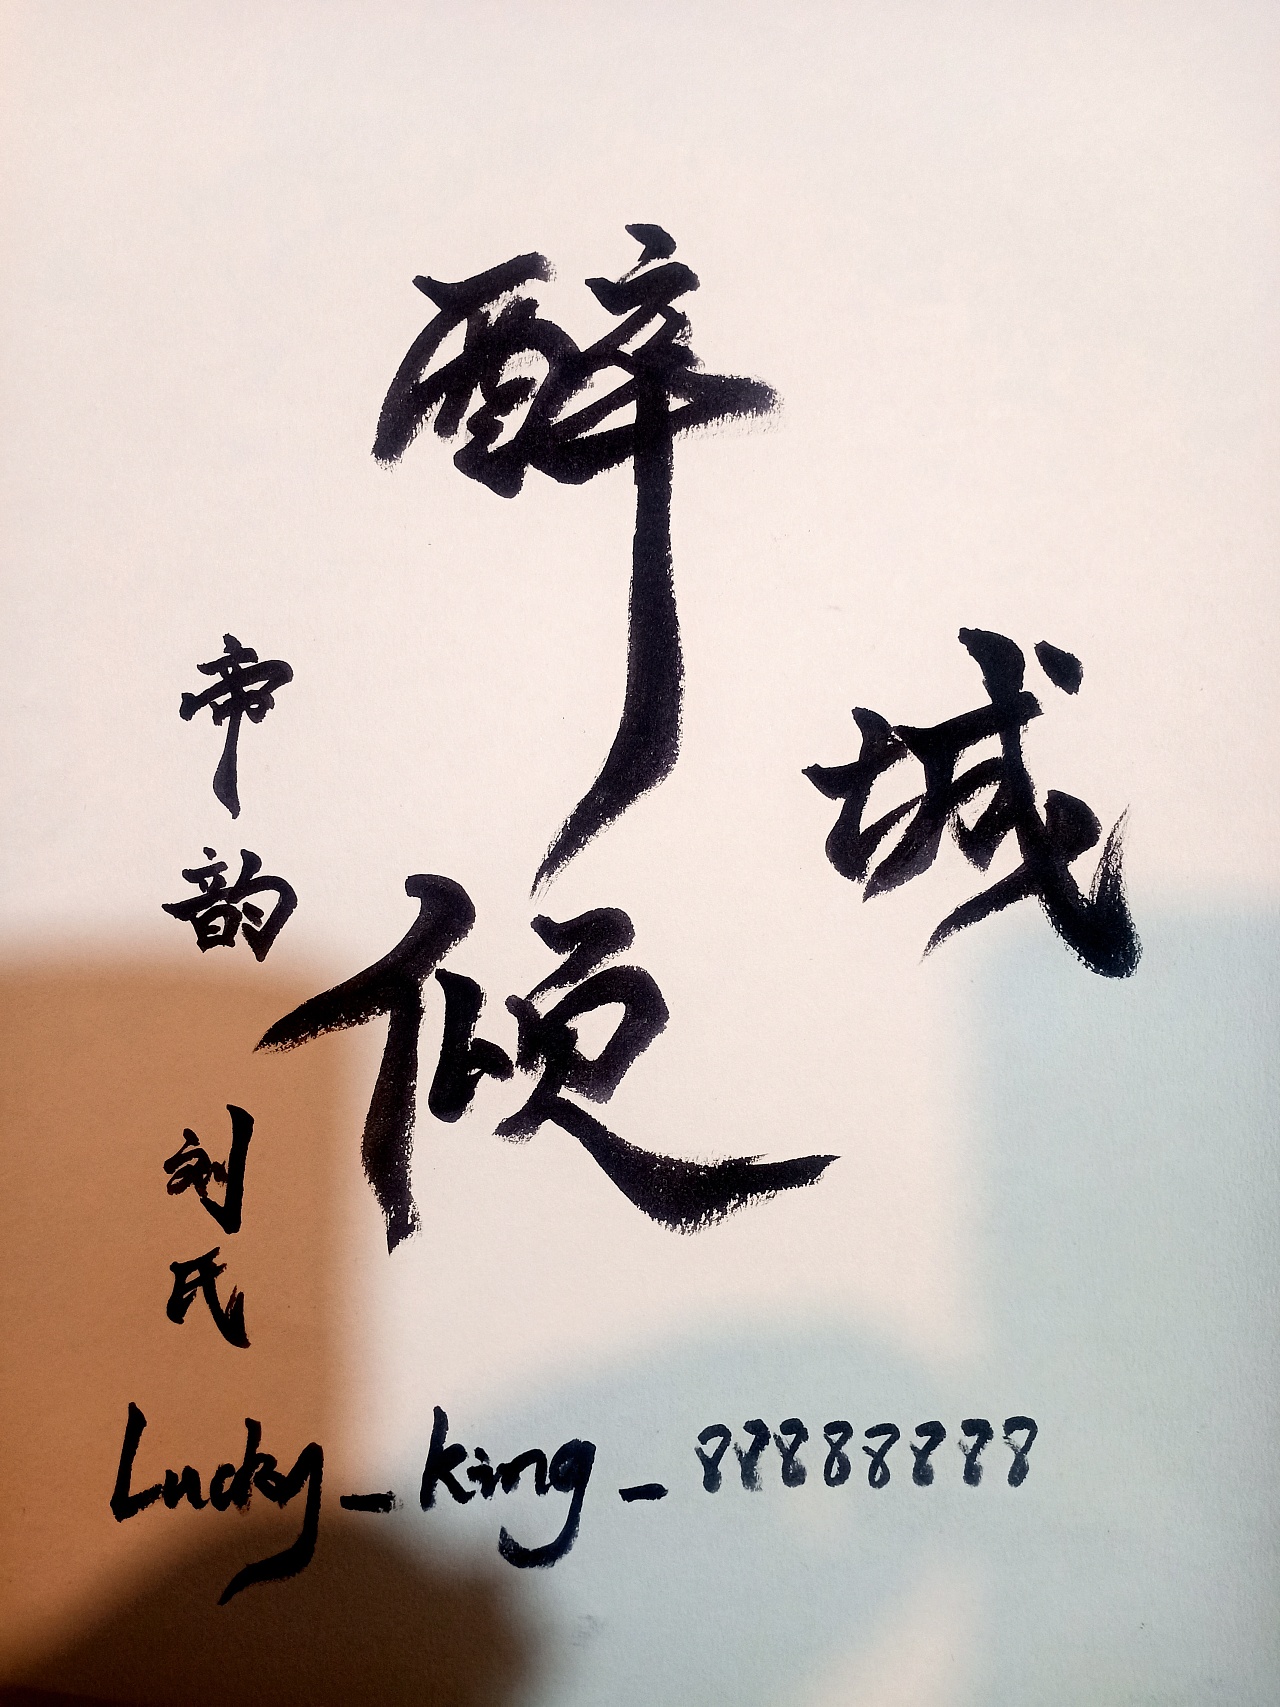 醉倾城
帝韵
刘氏
Lucky_king_88888888